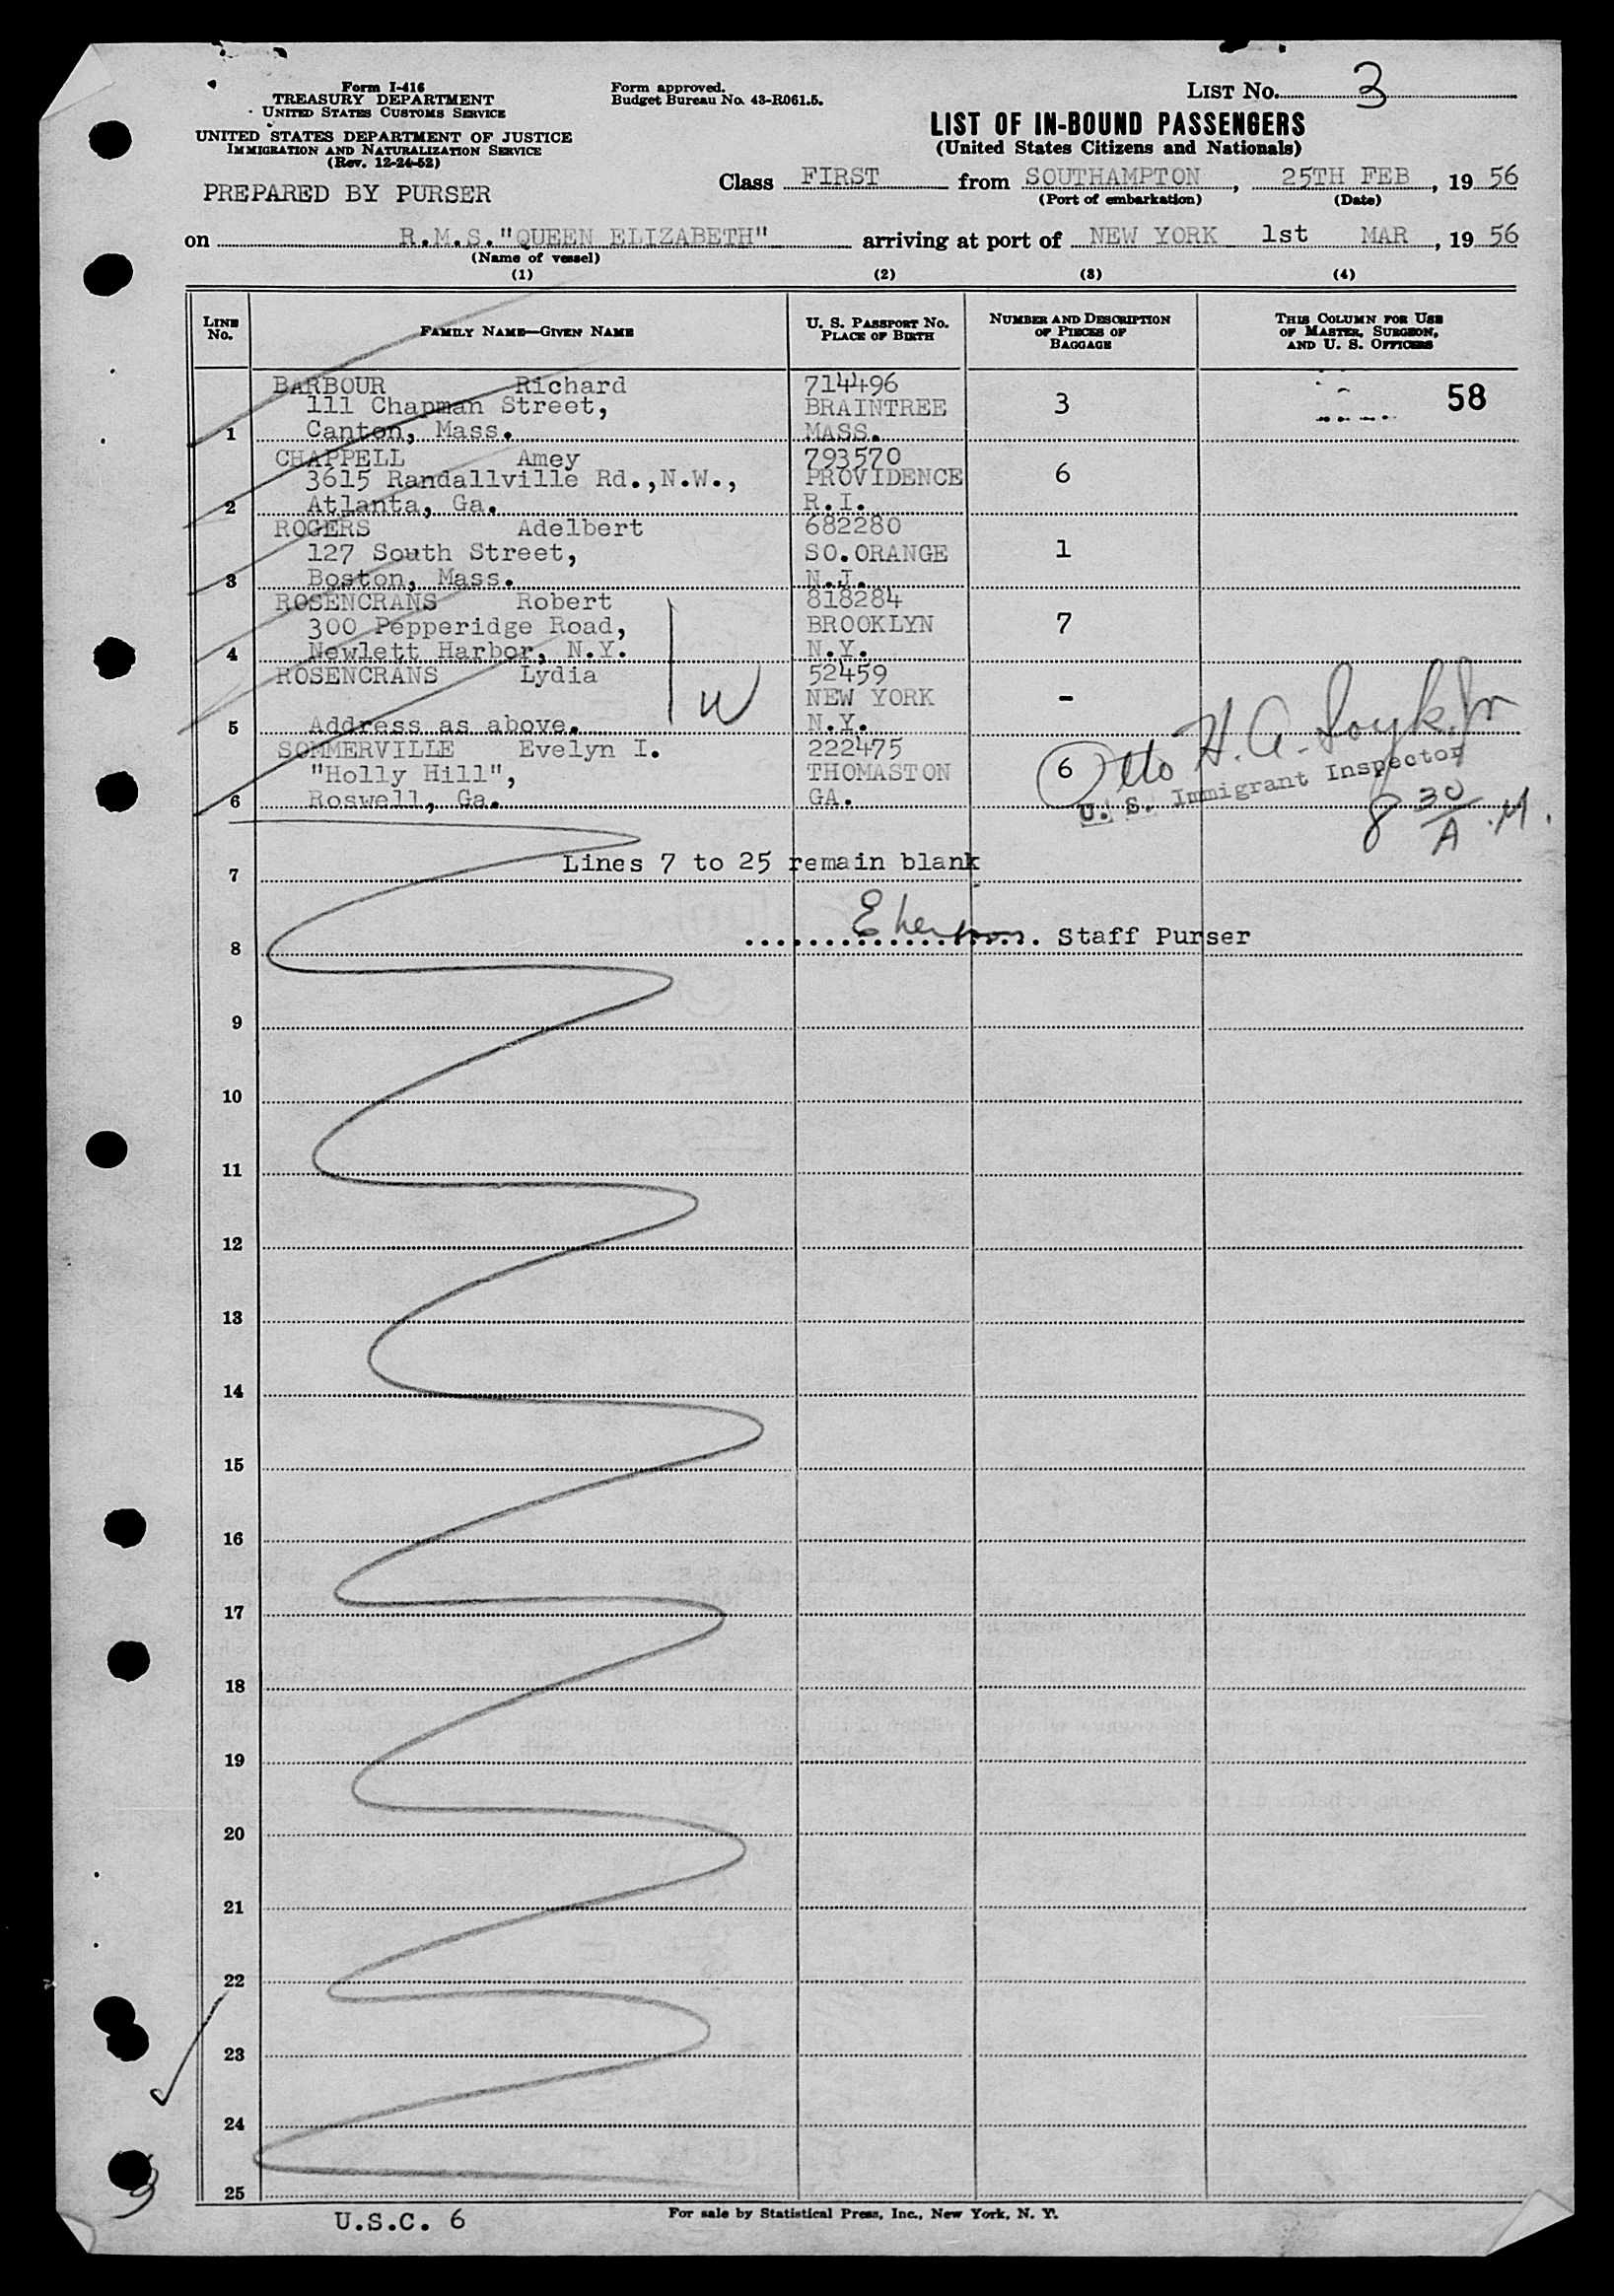 Form I-416
TREASURY DEPARTMENT
UNITED STATES CUSTOMS SERVICE
UNITED STATES DEPARTMENT OF JUSTICE
IMMIGRATION AND NATURALIZATION SERVICE
(Rev. 12-24-52)
PREPARED BY PURSER
Form approved.
Budget Bureau No. 43-R061.5.
LIST No. 3
LIST OF IN-BOUND PASSENGERS
(United States Citizens and Nationals)
Class FIRST from SOUTHAMPTON, 25TH FEB, 19 56
(Port of embarkation) (Date)
on R.M.S."QUEEN ELIZABETH" arriving at port of NEW YORK 1st MAR, 19 56
(Name of vessel)
(1) (2) (3) (4)
LINE No. FAMILY NAME—GIVEN NAME U. S. PASSPORT No. PLACE OF BIRTH NUMBER AND DESCRIPTION OF PIECES OF BAGGAGE THIS COLUMN FOR USE OF MASTER, SURGEON, AND U. S. OFFICERS
BARBOUR Richard 714496
111 Chapman Street, BRAINTREE 3 58
1 Canton, Mass. MASS.
CHAPPELL Amey 793570
3615 Randallville Rd.,N.W., PROVIDENCE 6
2 Atlanta, Ga. R.I.
ROGERS Adelbert 682280
127 South Street, SO.ORANGE 1
3 Boston, Mass. N.J.
ROSENCRANS Robert 818284
300 Pepperidge Road, BROOKLYN 7
4 Newlett Harbor, N.Y. N.Y.
ROSENCRANS Lydia 52459
W NEW YORK -
5 Address as above. N.Y.
SOMMERVILLE Evelyn I. 222475
"Holly Hill", THOMASTON 6
6 Roswell, Ga. GA.
H. A.
U. S. Immigrant Inspector
8 30/A .M.
Lines 7 to 25 remain blank
7
Staff Purser
8
9
10
11
12
13
14
15
16
17
18
19
20
21
22
23
24
25
U.S.C. 6
For sale by Statistical Press, Inc., New York, N. Y.